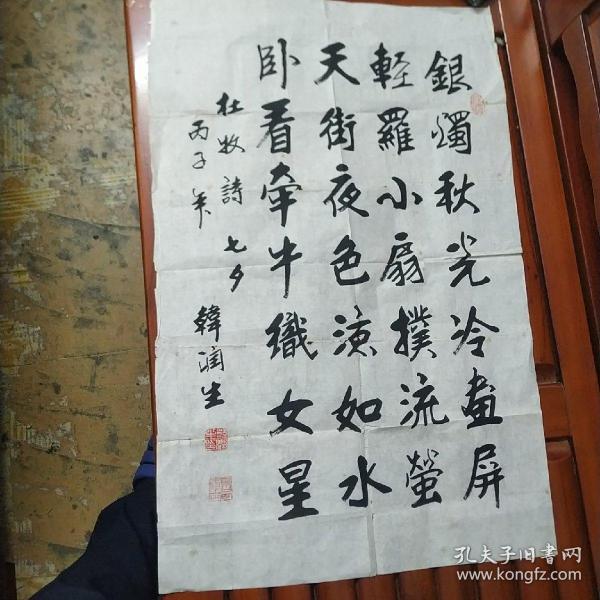 銀燭秋光冷畫屏
輕羅小扇撲流螢
天街夜色涼如水
卧看牽牛織女星
杜牧詩 七夕
丙子年 韓潤生
孔夫子旧书网
www.kongfz.com